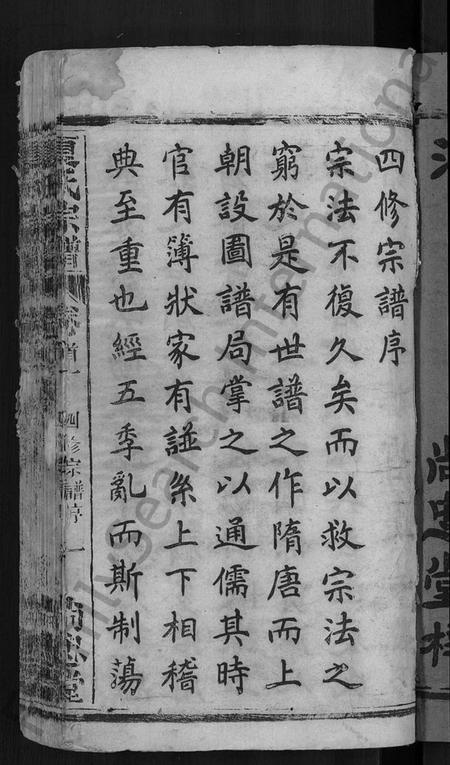 四修宗譜序
宗法不復久矣而以救宗法之
窮於是有世譜之作隋唐而上
朝設圖譜局掌之以通儒其時
官有簿狀家有譜系上下相稽
典至重也經五季亂而斯制蕩
氏宗譜
卷首一
四修宗譜序
一
尚忠堂
尚忠堂梓
familysearch international